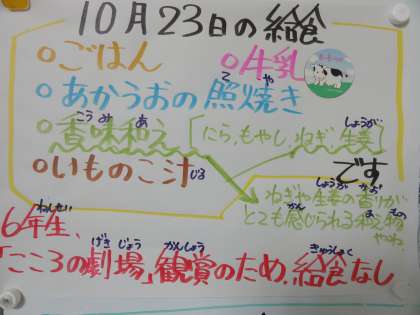 10月23日の給食
○ごはん ○牛乳
○あかうおの照焼き
○香味和え [にら、もやし、ねぎ、生姜]
○いものこ汁 です
ねぎや生姜の香りが
とても感じられる和え物
やね。
6年生、
「こころの劇場」観賞のため、給食なし